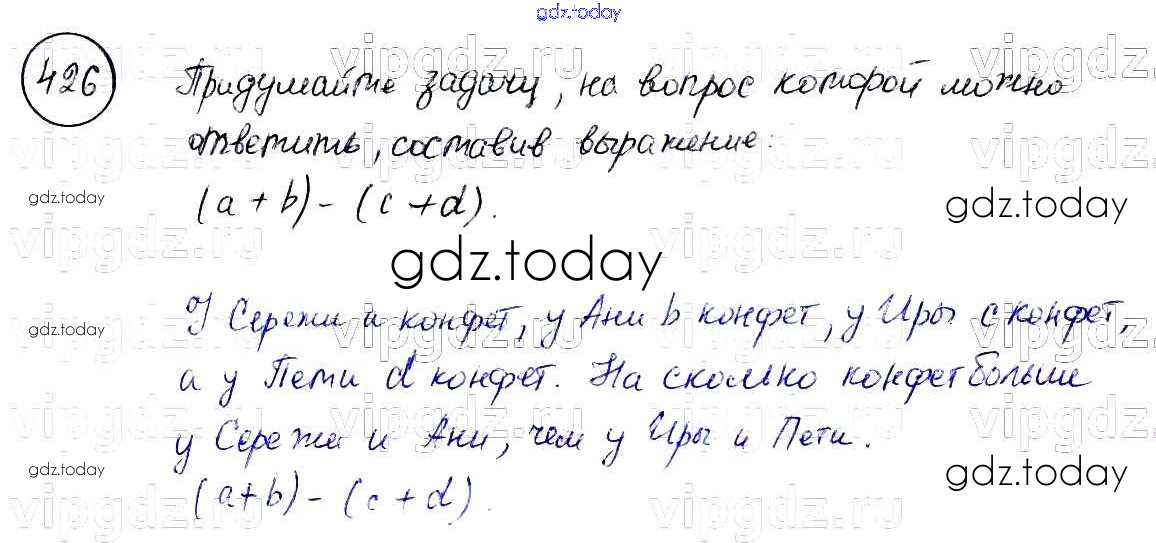 gdz.today
426 Придумайте задачу, на вопрос которой можно
ответить, составив выражение:
gdz.today (a + b) - (c + d). gdz.today
gdz.today
У Сережи a конфет, у Ани b конфет, у Иры c конфет,
gdz.today
а у Пети d конфет. На сколько конфет больше
у Сережи и Ани, чем у Иры и Пети.
gdz.today gdz.today
(a+b) - (c + d).